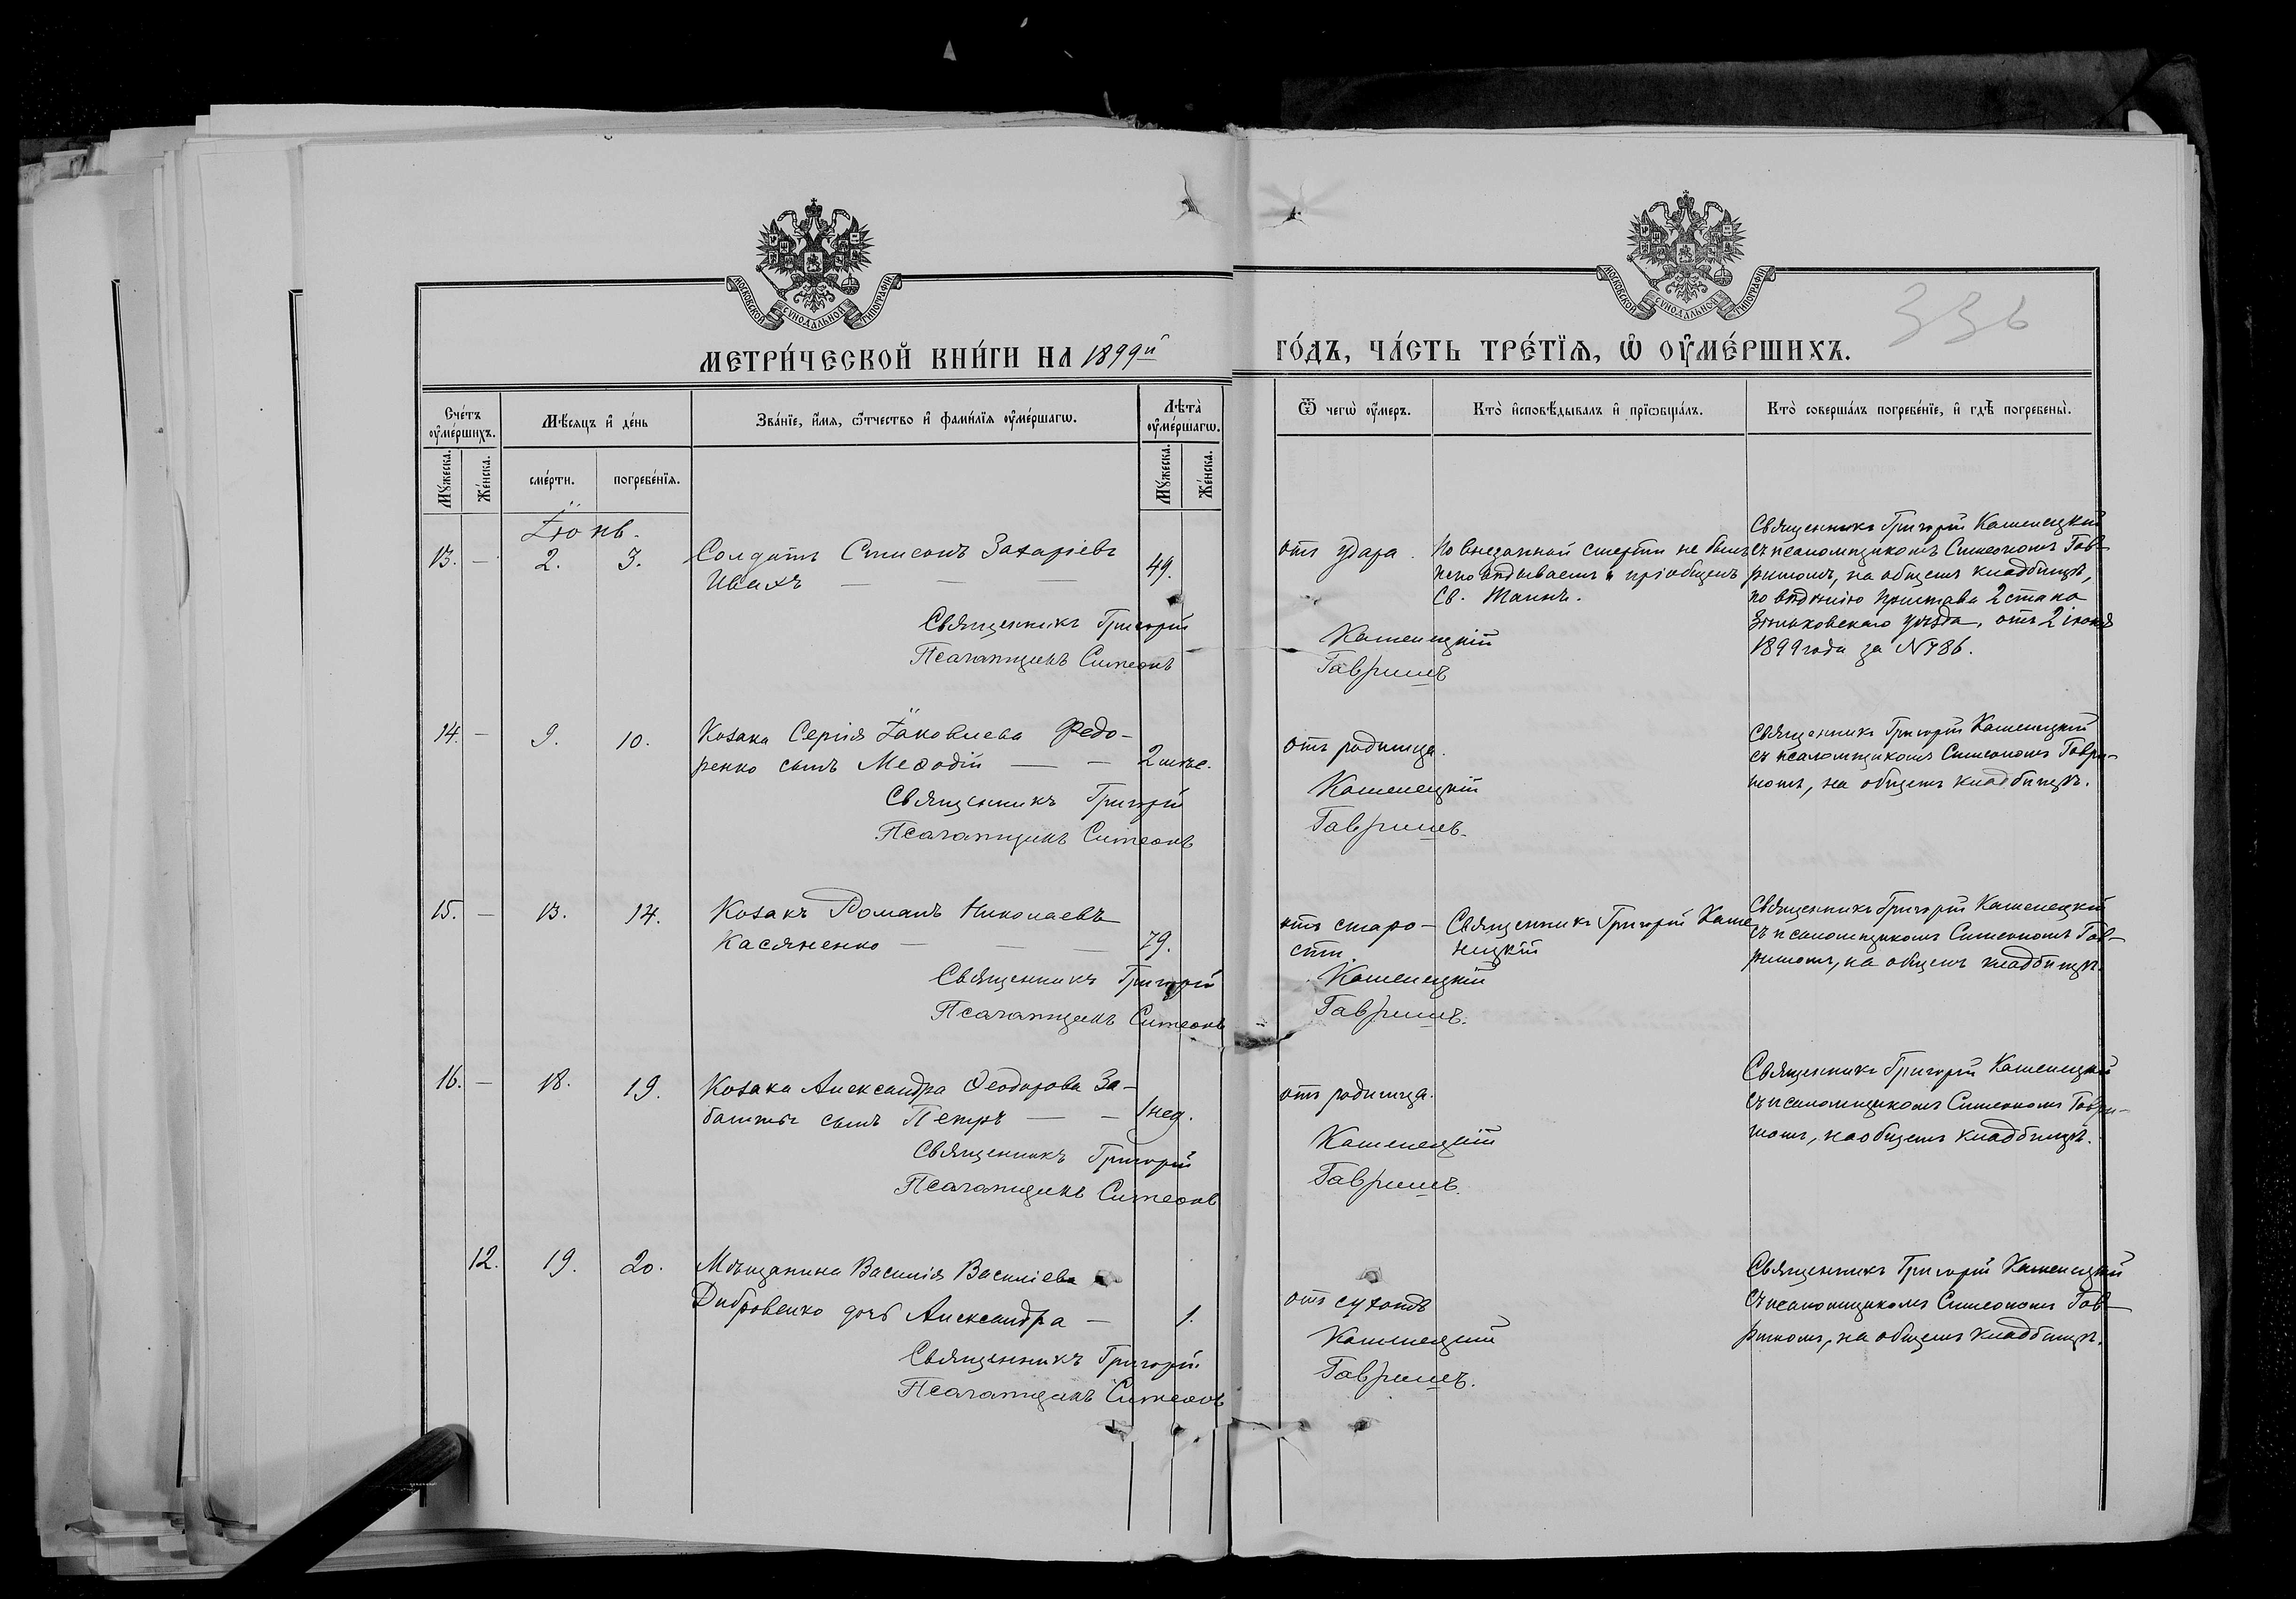 МОСКОВСКОЙ СѴНОДАЛЬНОЙ ТИПОГРАФІИ.
МОСКОВСКОЙ СѴНОДАЛЬНОЙ ТИПОГРАФІИ.
336
МЕТРИ́ЧЕСКОЙ КНИ́ГИ НА 1899й
ГО́ДЪ, ЧА́СТЬ ТРЕ́ТЇѦ, Ѡ҆ ОУ҆МЕ́РШИХЪ.
Сче́тъ оу҆ме́ршихъ.
Мѣ́сяцъ и҆ де́нь
Зва́нїе, и҆́мя, ѻ҆́тчество и҆ фами́лїя оу҆ме́ршагѡ.
Лѣта̀ оу҆ме́ршагѡ.
Ѿ чегѡ̀ оу҆́меръ.
Кто̀ и҆сповѣ́дывалъ и҆ прїѡбща́лъ.
Кто̀ соверша́лъ погребе́нїе, и҆ гдѣ̀ погребены̀.
Мꙋ́жеска.
Же́нска.
сме́рти.
погребе́нїя.
Мꙋ́жеска.
Же́нска.
Іюнь.
13. — 2. 3. Солдатъ Симеонъ Захаріевъ
Ивахъ — — — 49.
Священникъ Григорій
Псаломщикъ Симеонъ
отъ удара.
Каменецкій
Гавришъ
По внезапной смерти не былъ
исповѣдываемъ и пріобщенъ
Св. Таинъ.
Священникъ Григорій Каменецкій
съ псаломщикомъ Симеономъ Гав-
ришомъ, на общемъ кладбищѣ,
по вѣдѣнію пристава 2 стана
Зѣньковскаго уѣзда, отъ 2 іюня
1899 года за № 786.
14. — 9. 10. Козака Сергія Іаковлева Федо-
ренко сынъ Меѳодій — — 2 мѣс.
Священникъ Григорій
Псаломщикъ Симеонъ
отъ родимца.
Каменецкій
Гавришъ.
Священникъ Григорій Каменецкій
съ псаломщикомъ Симеономъ Гаври-
шомъ, на общемъ кладбищѣ.
15. — 13. 14. Козакъ Романъ Николаевъ
Касяненко — — — 79.
Священникъ Григорій
Псаломщикъ Симеонъ
отъ старо-
сти.
Каменецкій
Гавришъ.
Священникъ Григорій Каме
нецкій
Священникъ Григорій Каменецкій
съ псаломщикомъ Симеономъ Гав-
ришомъ, на общемъ кладбищѣ.
16. — 18. 19. Козака Александра Ѳеодорова За-
башты сынъ Петръ — — 1 нед.
Священникъ Григорій
Псаломщикъ Симеонъ
отъ родимца.
Каменецкій
Гавришъ.
Священникъ Григорій Каменецкій
съ псаломщикомъ Симеономъ Гаври-
шомъ, на общемъ кладбищѣ.
12. 19. 20. Мѣщанина Василія Василіева
Дибровенко дочь Александра — 1.
Священникъ Григорій
Псаломщикъ Симеонъ
отъ сухотъ
Каменецкій
Гавришъ.
Священникъ Григорій Каменецкій
съ псаломщикомъ Симеономъ Гав-
ришомъ, на общемъ кладбищѣ.